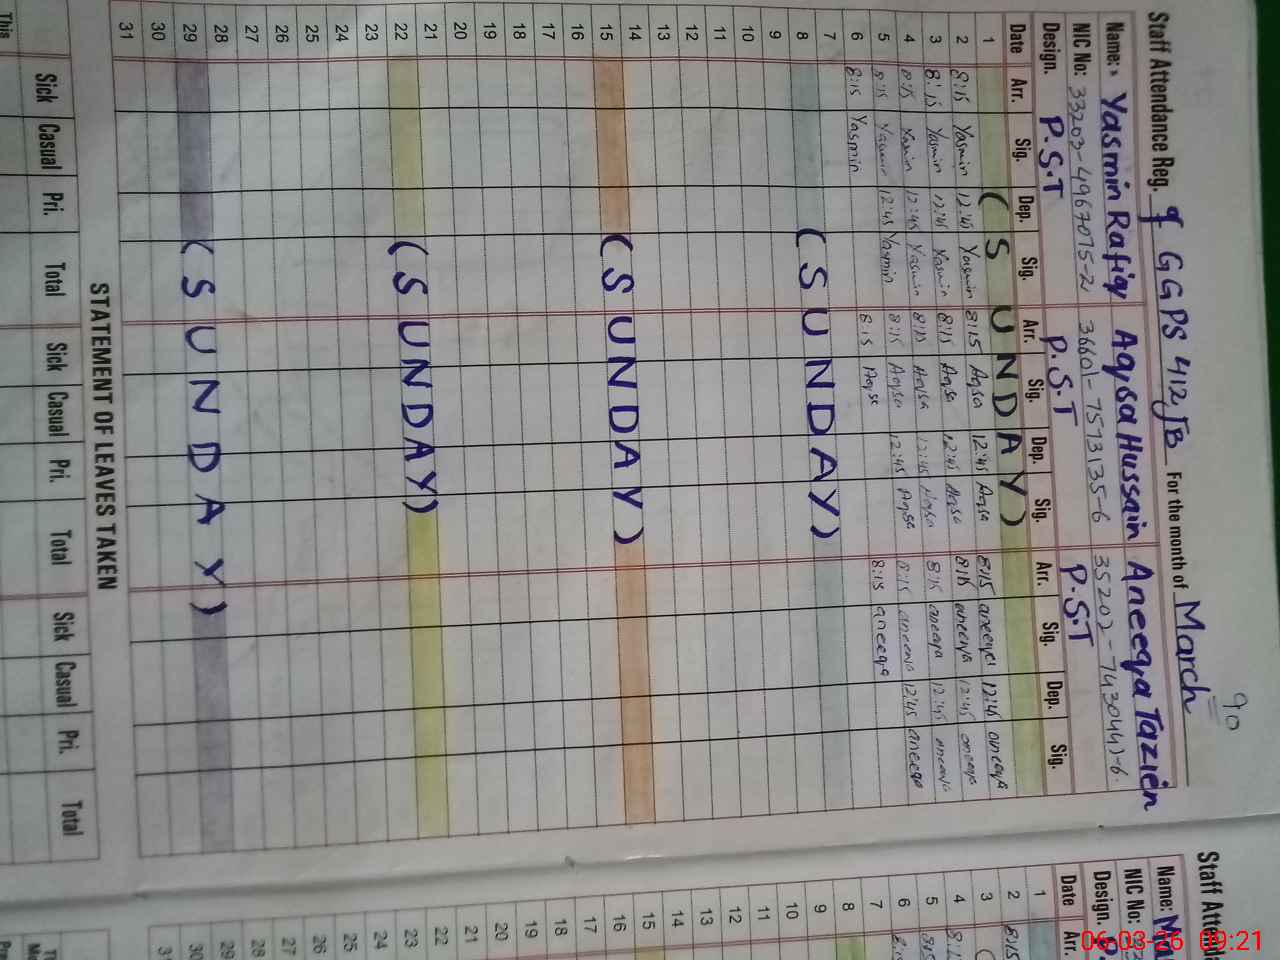 90
Staff Attendance Reg. of GGPS 412 JB For the month of March
Name: Yasmin Rafiq Aqsa Hussain Aneeqa Tazien
NIC No: 33203-4967075-2 36601-7573135-6
Design. P.S.T P.S.T P.S.T
Date Arr. Sig. Dep. Sig. Arr. Sig. Dep. Sig. Arr. Sig. Dep. Sig.
1 (SUNDAY)
2 8:15 Yasmin 12:45 Yasmin 8:15 Aqsa 12:45 Aqsa 8:15 aneeqa 12:45 aneeqa
3 8:15 Yasmin 12:45 Yasmin 8:15 Aqsa 12:45 Aqsa 8:15 aneeqa 12:45 aneeqa
4 8:15 Yasmin 12:45 Yasmin 8:15 Aqsa 12:45 Aqsa 8:15 aneeqa 12:45 aneeqa
5 8:15 Yasmin 12:45 Yasmin 8:15 Aqsa 12:45 Aqsa 8:15 aneeqa 12:45 aneeqa
6 8:15 Yasmin 8:15 Aqsa 8:15 aneeqa
7
8 (SUNDAY)
9
10
11
12
13
14
15 (SUNDAY)
16
17
18
19
20
21
22 (SUNDAY)
23
24
25
26
27
28
29 (SUNDAY)
30
31
STATEMENT OF LEAVES TAKEN
Sick Casual Pri. Total Sick Casual Pri. Total Sick Casual Pri. Total
This
Staff Attenda
Name: Ma
NIC No:
Design. P.
Date Arr.
1
2 8:15
3
4
5
6
7
8
9
10
11
12
13
14
15
16
17
18
19
20
21
22
23
24
25
26
27
28
29
30
31
06-03-26 09:21